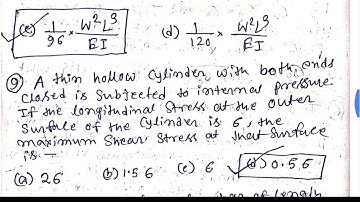 ✓(c) 1/96 × W²L³/EI (d) 1/120 × W²L³/EI
(9) A thin hollow cylinder with both ends
closed is subjected to internal pressure.
If the longitudinal stress at the outer
surface of the cylinder is 6, the
maximum shear stress at that surface
is —
(a) 26 (b) 1.56 (c) 6 ✓(d) 0.56
of length